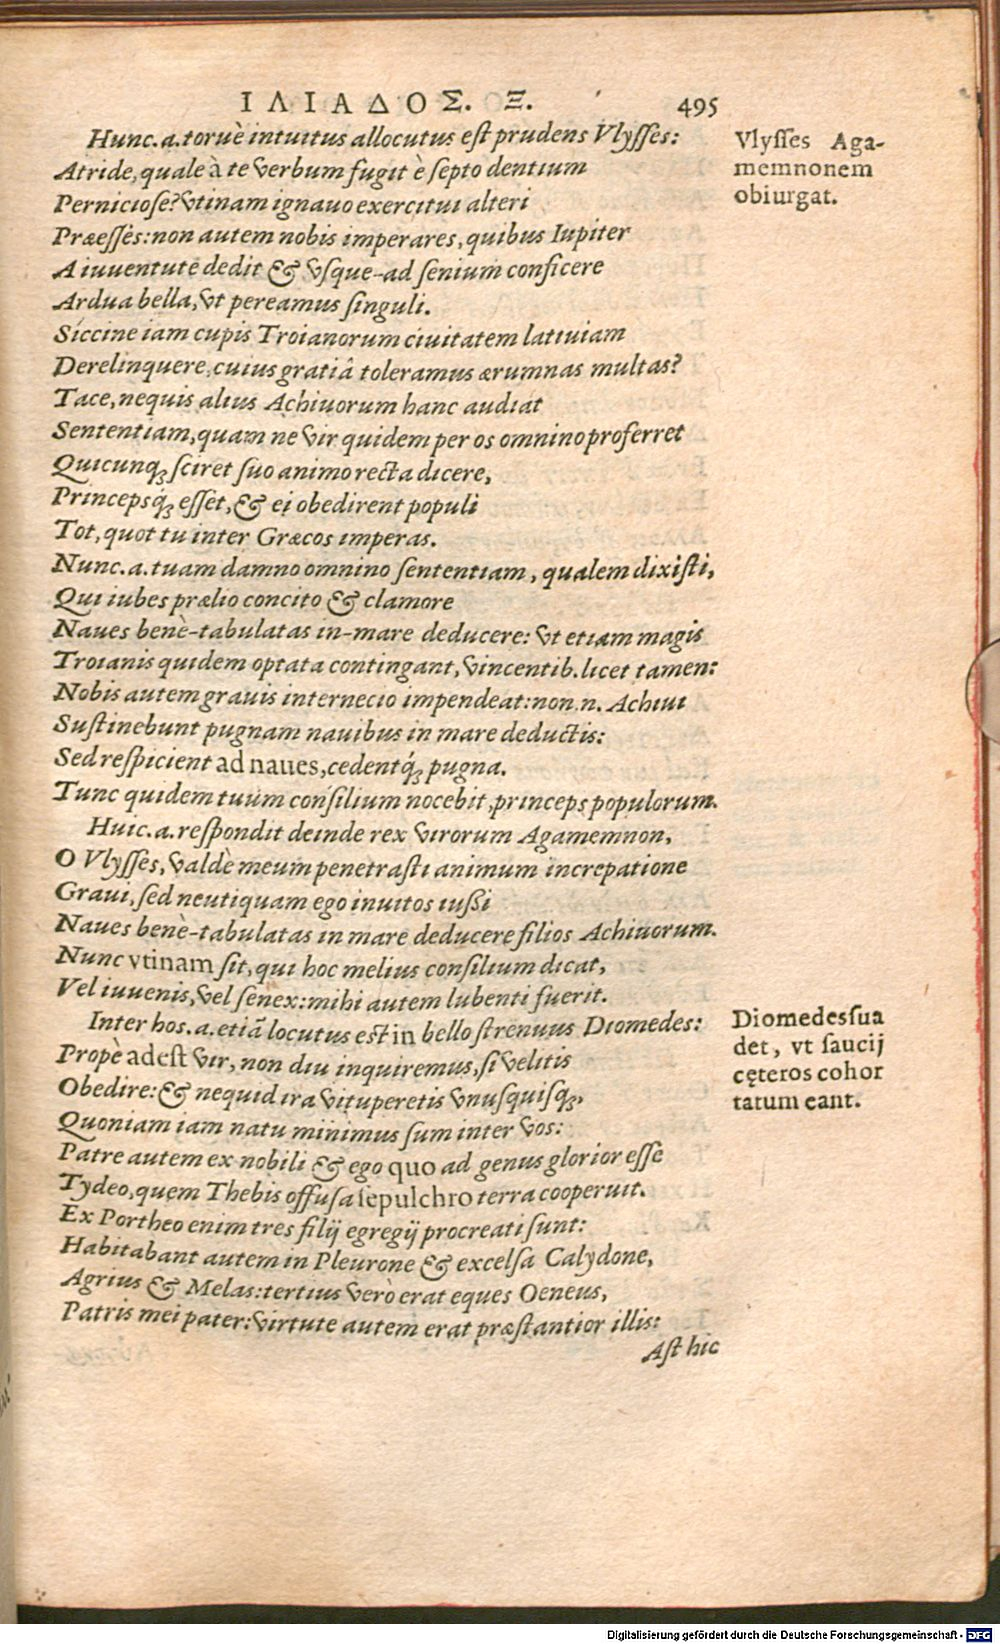 ΙΛΙΑΔΟΣ. Ξ. 495
Hunc.a.toruè intuitus allocutus est prudens Vlysses:
Atride, quale à te verbum fugit è septo dentium
Perniciose? vtinam ignauo exercitui alteri
Præesses: non autem nobis imperares, quibus Iupiter
A iuuentute dedit & vsque-ad senium conficere
Ardua bella, vt pereamus singuli.
Siccine iam cupis Troianorum ciuitatem lativiam
Derelinquere, cuius gratiâ toleramus ærumnas multas?
Tace, nequis alius Achiuorum hanc audiat
Sententiam, quam ne vir quidem per os omnino proferret
Quicunq; sciret suo animo recta dicere,
Princepsq́; esset, & ei obedirent populi
Tot, quot tu inter Græcos imperas.
Nunc.a.tuam damno omnino sententiam, qualem dixisti,
Qui iubes prælio concito & clamore
Naues benè-tabulatas in-mare deducere: vt etiam magis
Troianis quidem optata contingant, vincentib. licet tamen:
Nobis autem grauis internecio impendeat: non.n. Achiui
Sustinebunt pugnam nauibus in mare deductis:
Sed respicient ad naues, cedentq́; pugna.
Tunc quidem tuum consilium nocebit, princeps populorum.
Huic.a.respondit deinde rex virorum Agamemnon,
O Vlysses, valdè meum penetrasti animum increpatione
Graui, sed neutiquam ego inuitos iussi
Naues benè-tabulatas in mare deducere filios Achiuorum.
Nunc vtinam sit, qui hoc melius consilium dicat,
Vel iuuenis, vel senex: mihi autem lubenti fuerit.
Inter hos.a.etiā locutus est in bello strenuus Diomedes:
Propè adest vir, non diu inquiremus, si velitis
Obedire: & nequid ira vituperetis vnusquisq;,
Quoniam iam natu minimus sum inter vos:
Patre autem ex nobili & ego quo ad genus glorior esse
Tydeo, quem Thebis offusa sepulchro terra cooperuit.
Ex Portheo enim tres filij egregij procreati sunt:
Habitabant autem in Pleurone & excelsa Calydone,
Agrius & Melas: tertius verò erat eques Oeneus,
Patris mei pater: virtute autem erat præstantior illis:
Ast hic
Vlysses Aga-
memnonem
obiurgat.
Diomedes sua
det, vt saucij
cęteros cohor
tatum eant.
Digitalisierung gefördert durch die Deutsche Forschungsgemeinschaft - DFG